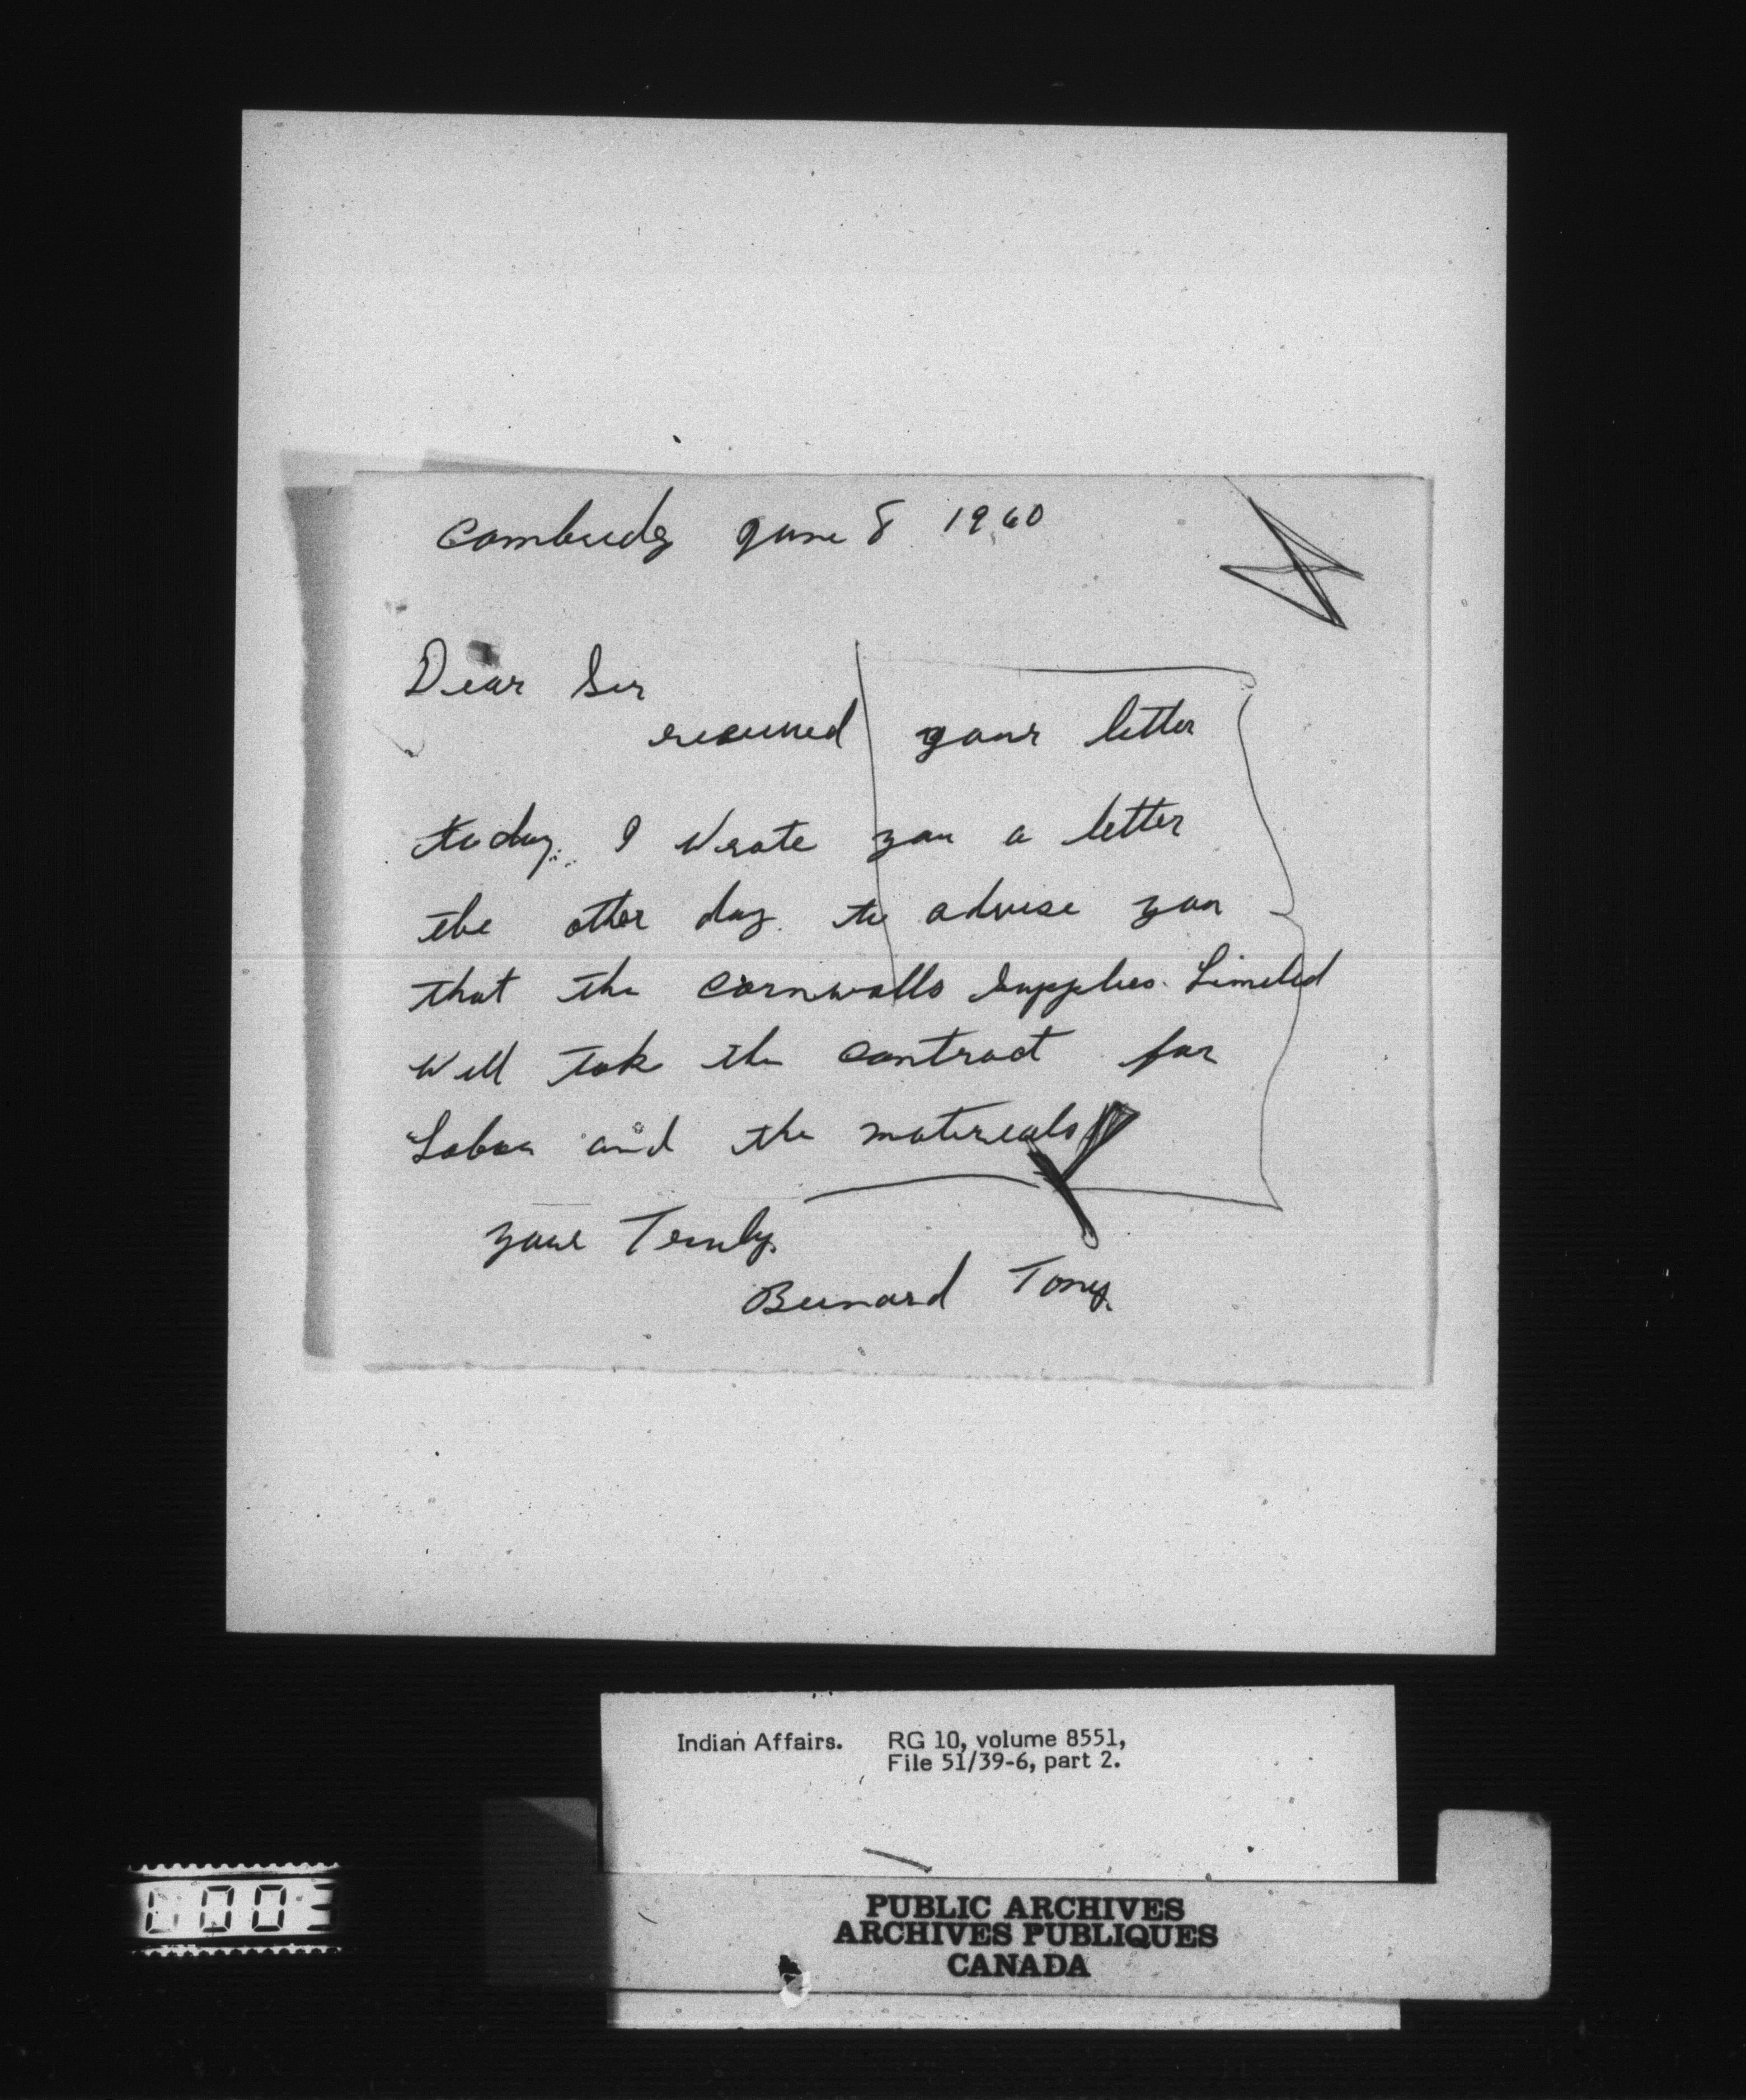 Cambridg June 8 1960
Dear Sir
received your letter
today. I Wrote you a letter
the other day. to advise you
that the Cornwalls Supplies. Limeted
Will take the contract for
Labor and the matereals
your Truly.
Bernard Tony.
Indian Affairs. RG 10, volume 8551,
File 51/39-6, part 2.
PUBLIC ARCHIVES
ARCHIVES PUBLIQUES
CANADA